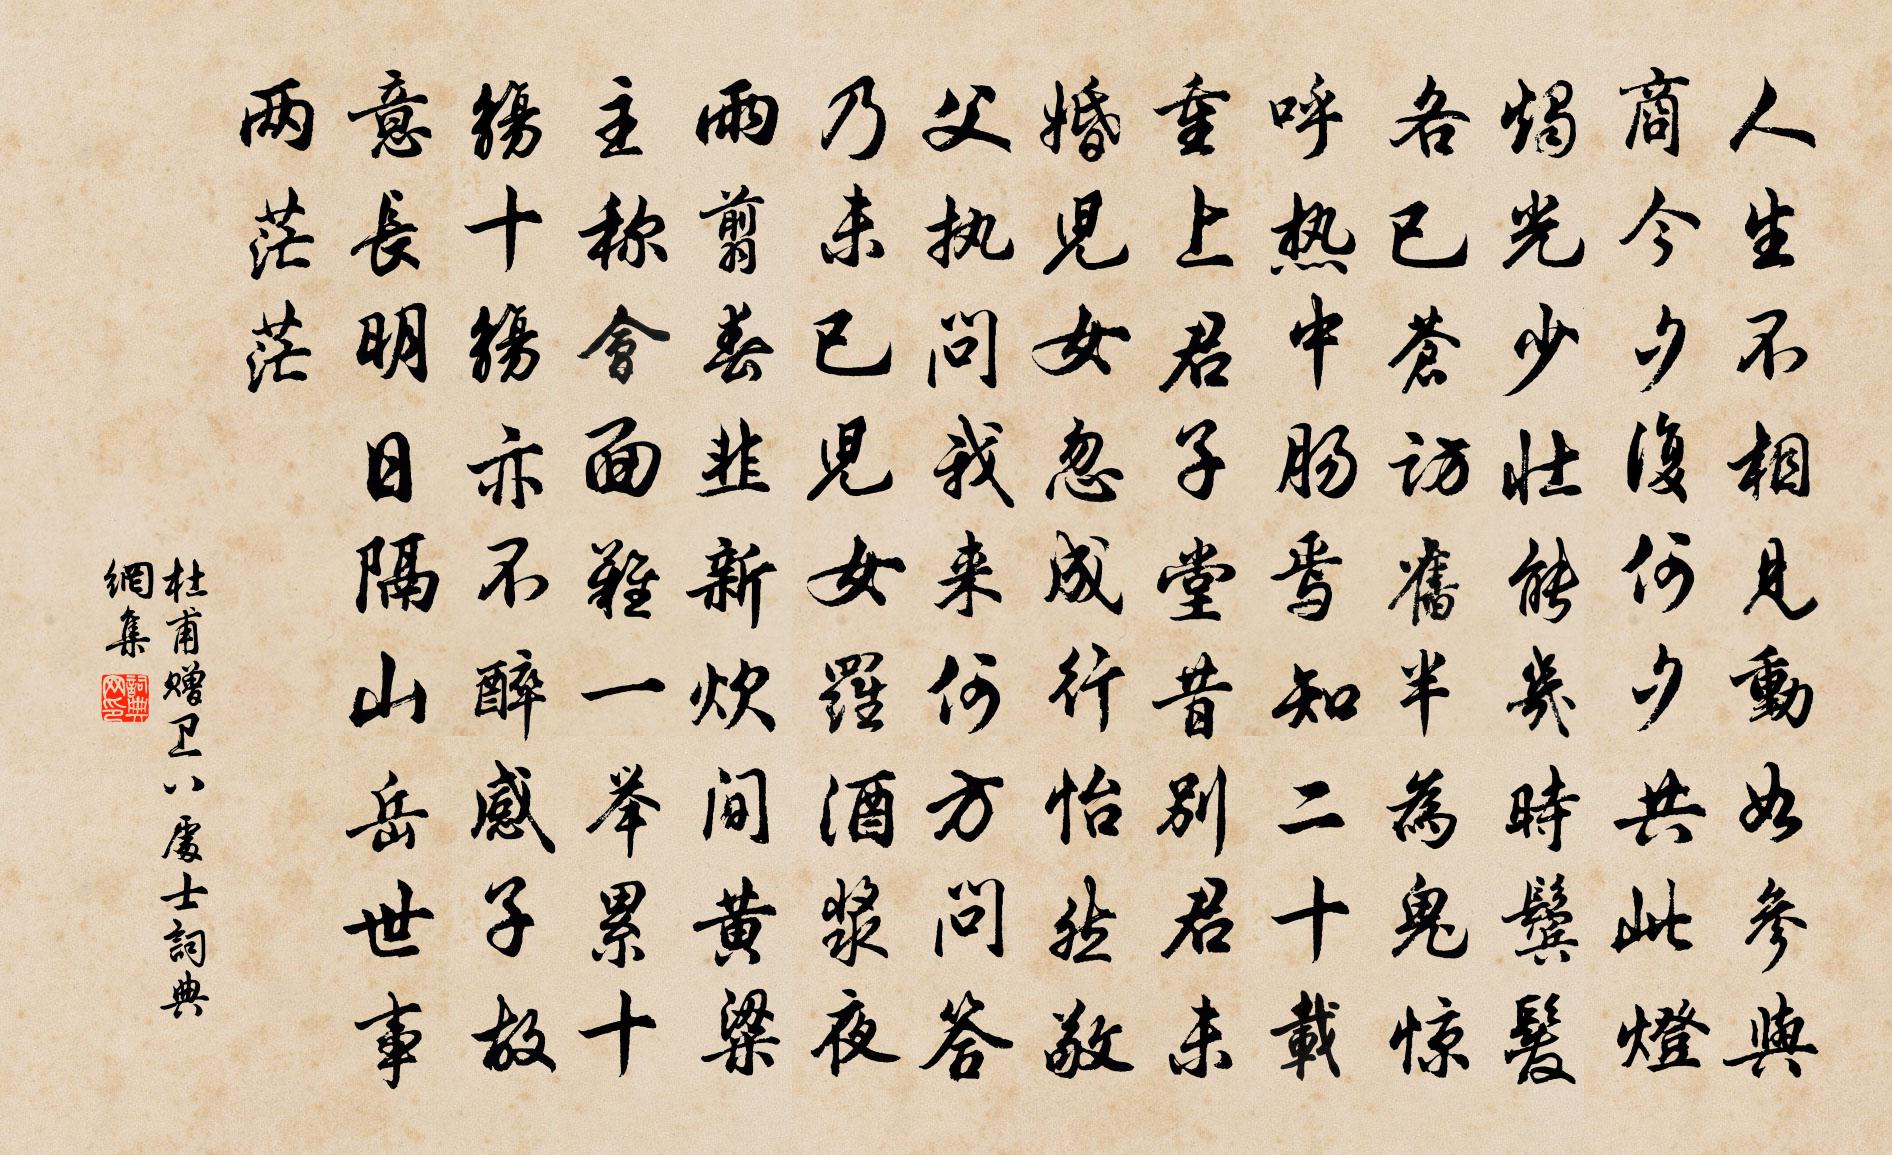 人生不相見動如參與
商今夕復何夕共此燈
燭光少壯能幾時鬢髮
各已蒼訪舊半為鬼惊
呼热中肠焉知二十載
重上君子堂昔別君未
婚兒女忽成行怡然敬
父执問我来何方問答
乃未已兒女羅酒漿夜
雨翦春韭新炊间黄粱
主称會面難一举累十
觴十觴亦不醉感子故
意長明日隔山岳世事
两茫茫
杜甫赠卫八處士詞典
網集
詞典
网印